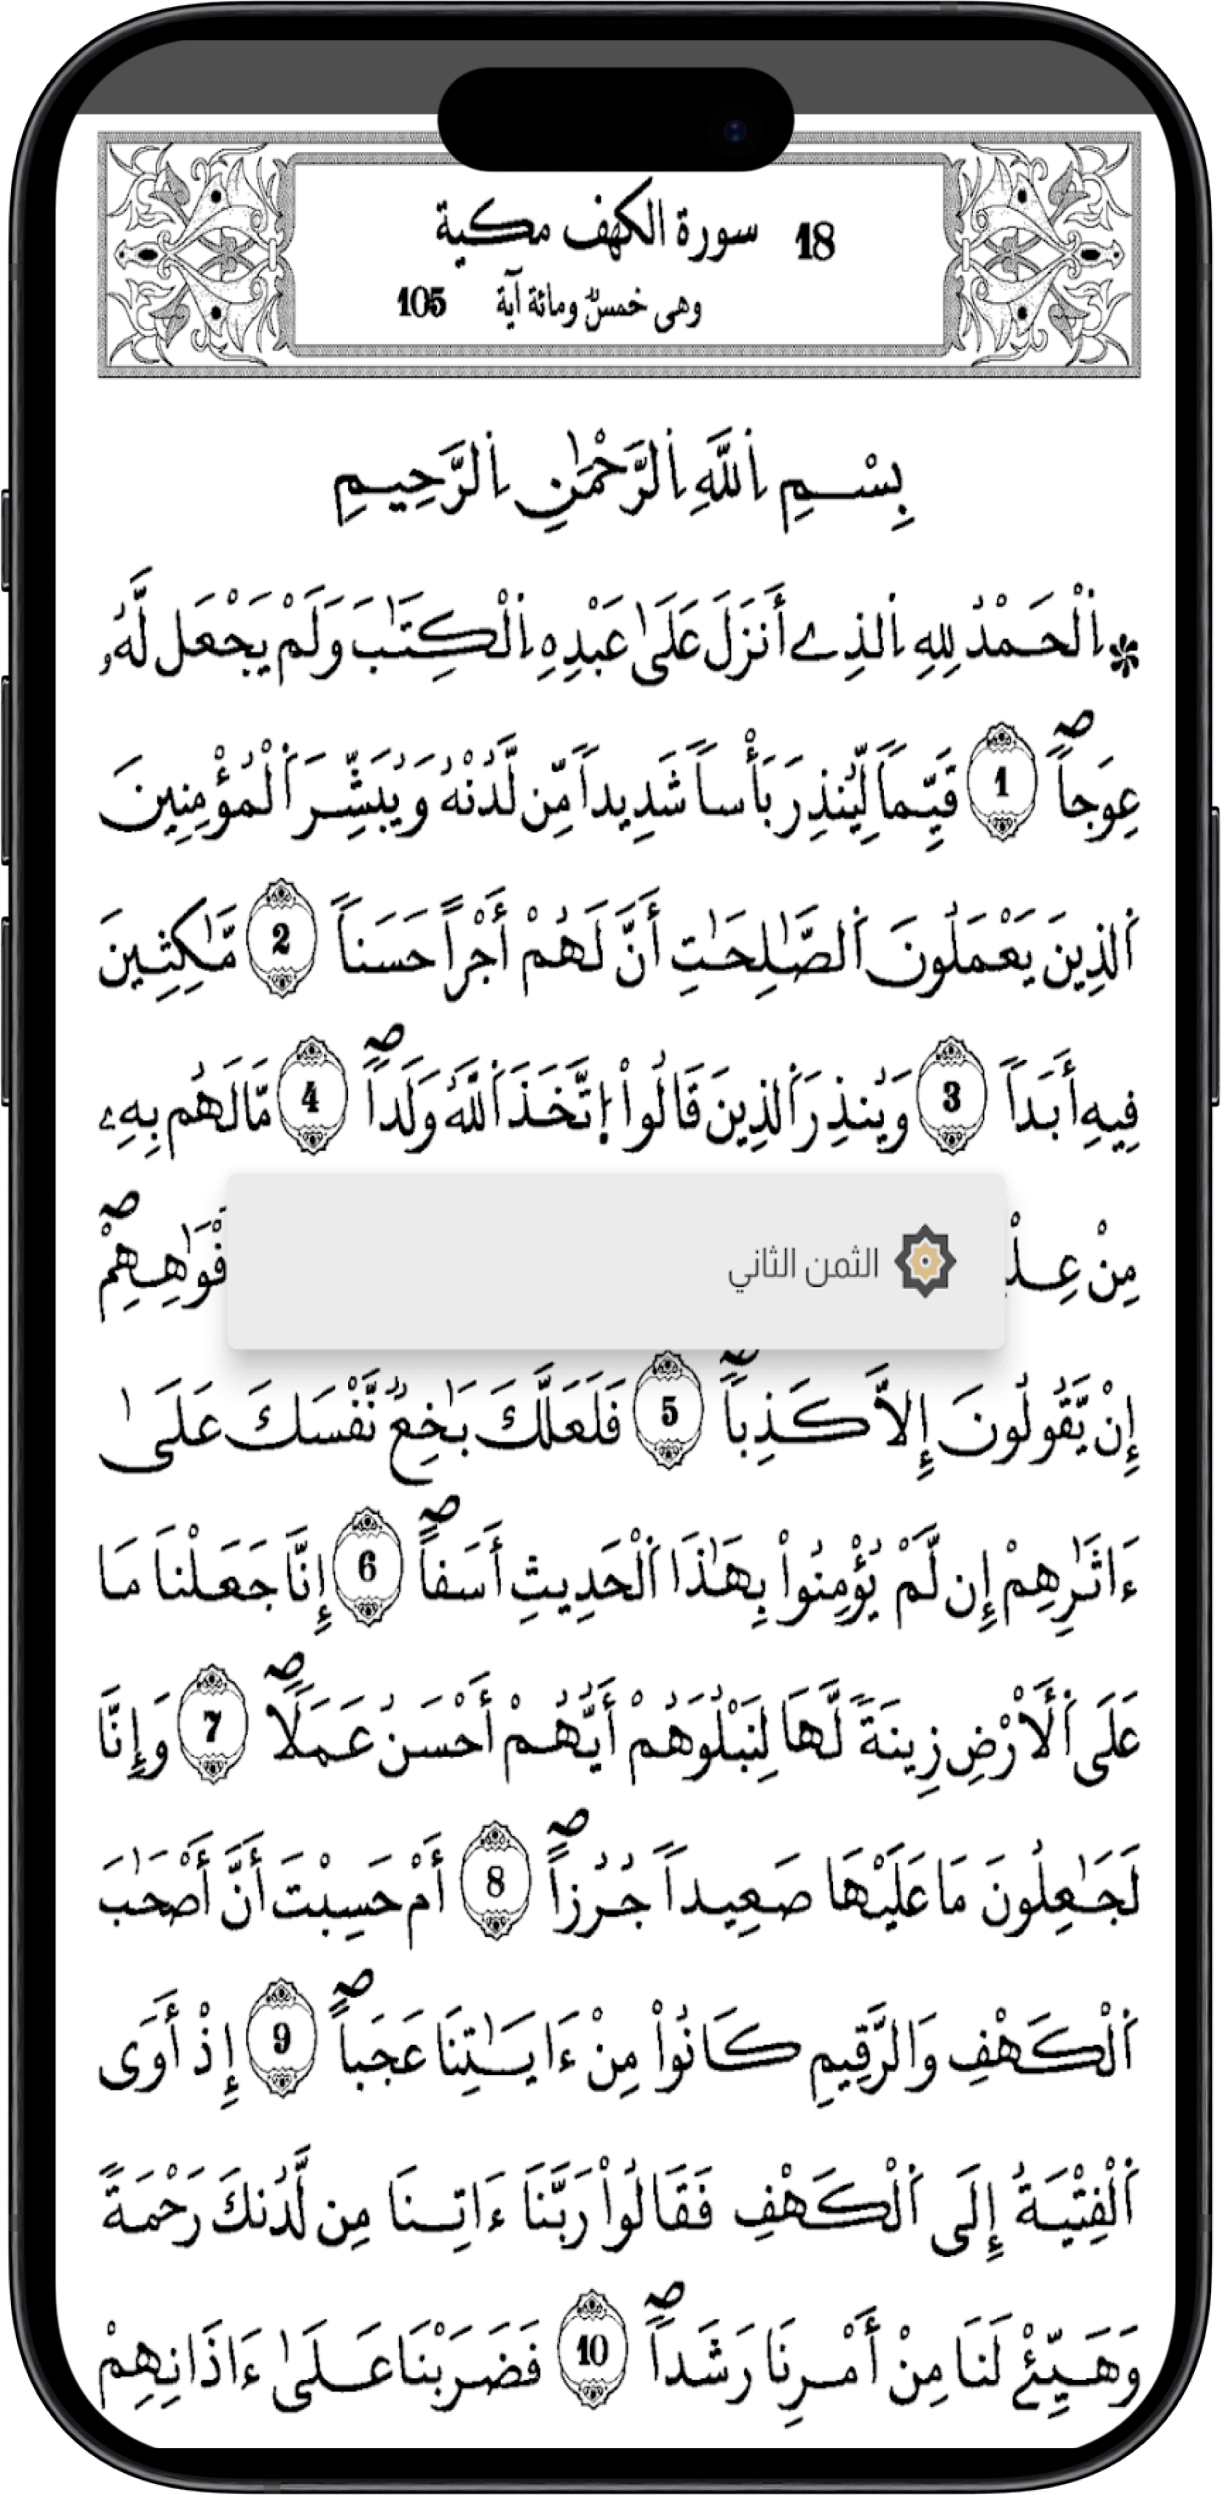 18 سورة الكهف مكية
وهى خمسٌ ومائة آية 105
بِسْمِ اِ۬للَّهِ اِ۬لرَّحْمَٰنِ اِ۬لرَّحِيمِ
۞اِ۬لْحَمْدُ لِلهِ اِ۬لذِےٓ أَنزَلَ عَلَىٰ عَبْدِهِ اِ۬لْكِتَٰبَ وَلَمْ يَجْعَل لَّهُۥ
عِوَجاًۖ 1 قَيِّماً لِّيُنذِرَ بَأْساً شَدِيداً مِّن لَّدُنْهُ وَيُبَشِّرَ اَ۬لْمُؤْمِنِينَ
اَ۬لذِينَ يَعْمَلُونَ اَ۬لصَّٰلِحَٰتِ أَنَّ لَهُمْ أَجْراً حَسَناً 2 مَّٰكِثِينَ
فِيهِ أَبَداً 3 وَيُنذِرَ اَ۬لذِينَ قَالُواْ اُ۪تَّخَذَ اَ۬للَّهُ وَلَداًۖ 4 مَّا لَهُم بِهِۦ
مِنْ عِلْ
الثمن الثاني
فْوَٰهِهِمْۖ
إِنْ يَّقُولُونَ إِلَّا كَذِباًۖ 5 فَلَعَلَّكَ بَٰخِعٞ نَّفْسَكَ عَلَىٰ
ءَاثَٰرِهِمْ إِن لَّمْ يُؤْمِنُواْ بِهَٰذَا اَ۬لْحَدِيثِ أَسَفاًۖ 6 إِنَّا جَعَلْنَا مَا
عَلَى اَ۬لْأَرْضِ زِينَةً لَّهَا لِنَبْلُوَهُمْ أَيُّهُمْ أَحْسَنُ عَمَلاًۖ 7 وَإِنَّا
لَجَٰعِلُونَ مَا عَلَيْهَا صَعِيداً جُرُزاًۖ 8 أَمْ حَسِبْتَ أَنَّ أَصْحَٰبَ
اَ۬لْكَهْفِ وَالرَّقِيمِ كَانُواْ مِنْ ءَايَٰتِنَا عَجَباًۖ 9 إِذْ أَوَى
اَ۬لْفِتْيَةُ إِلَى اَ۬لْكَهْفِ فَقَالُواْ رَبَّنَا ءَاتِنَا مِن لَّدُنكَ رَحْمَةً
وَهَيِّئْ لَنَا مِنْ أَمْرِنَا رَشَداًۖ 10 فَضَرَبْنَا عَلَىٰ ءَاذَانِهِمْ